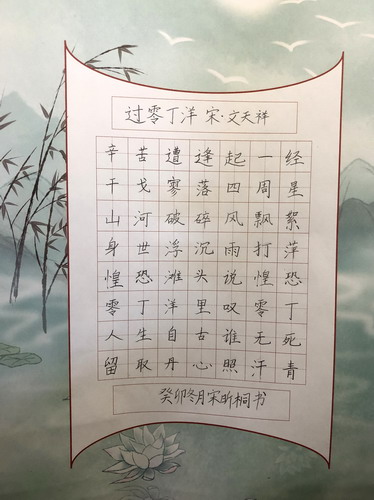 过零丁洋 宋·文天祥
辛苦遭逢起一经
干戈寥落四周星
山河破碎风飘絮
身世浮沉雨打萍
惶恐滩头说惶恐
零丁洋里叹零丁
人生自古谁无死
留取丹心照汗青
癸卯冬月宋昕桐书